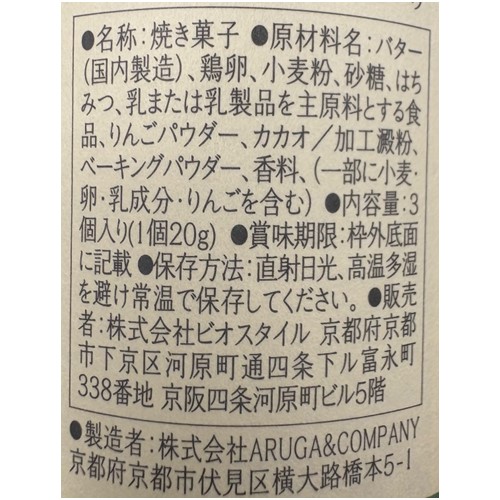 ●名称:焼き菓子 ●原材料名:バター
(国内製造)、鶏卵、小麦粉、砂糖、はち
みつ、乳または乳製品を主原料とする食
品、りんごパウダー、カカオ/加工澱粉、
ベーキングパウダー、香料、(一部に小麦・
卵・乳成分・りんごを含む) ●内容量:3
個入り(1個20g) ●賞味期限:枠外底面
に記載 ●保存方法:直射日光、高温多湿
を避け常温で保存してください。●販売
者:株式会社ビオスタイル 京都府京都
市下京区河原町通四条下ル富永町
338番地 京阪四条河原町ビル5階
●製造者:株式会社ARUGA&COMPANY
京都府京都市伏見区横大路橋本5-1